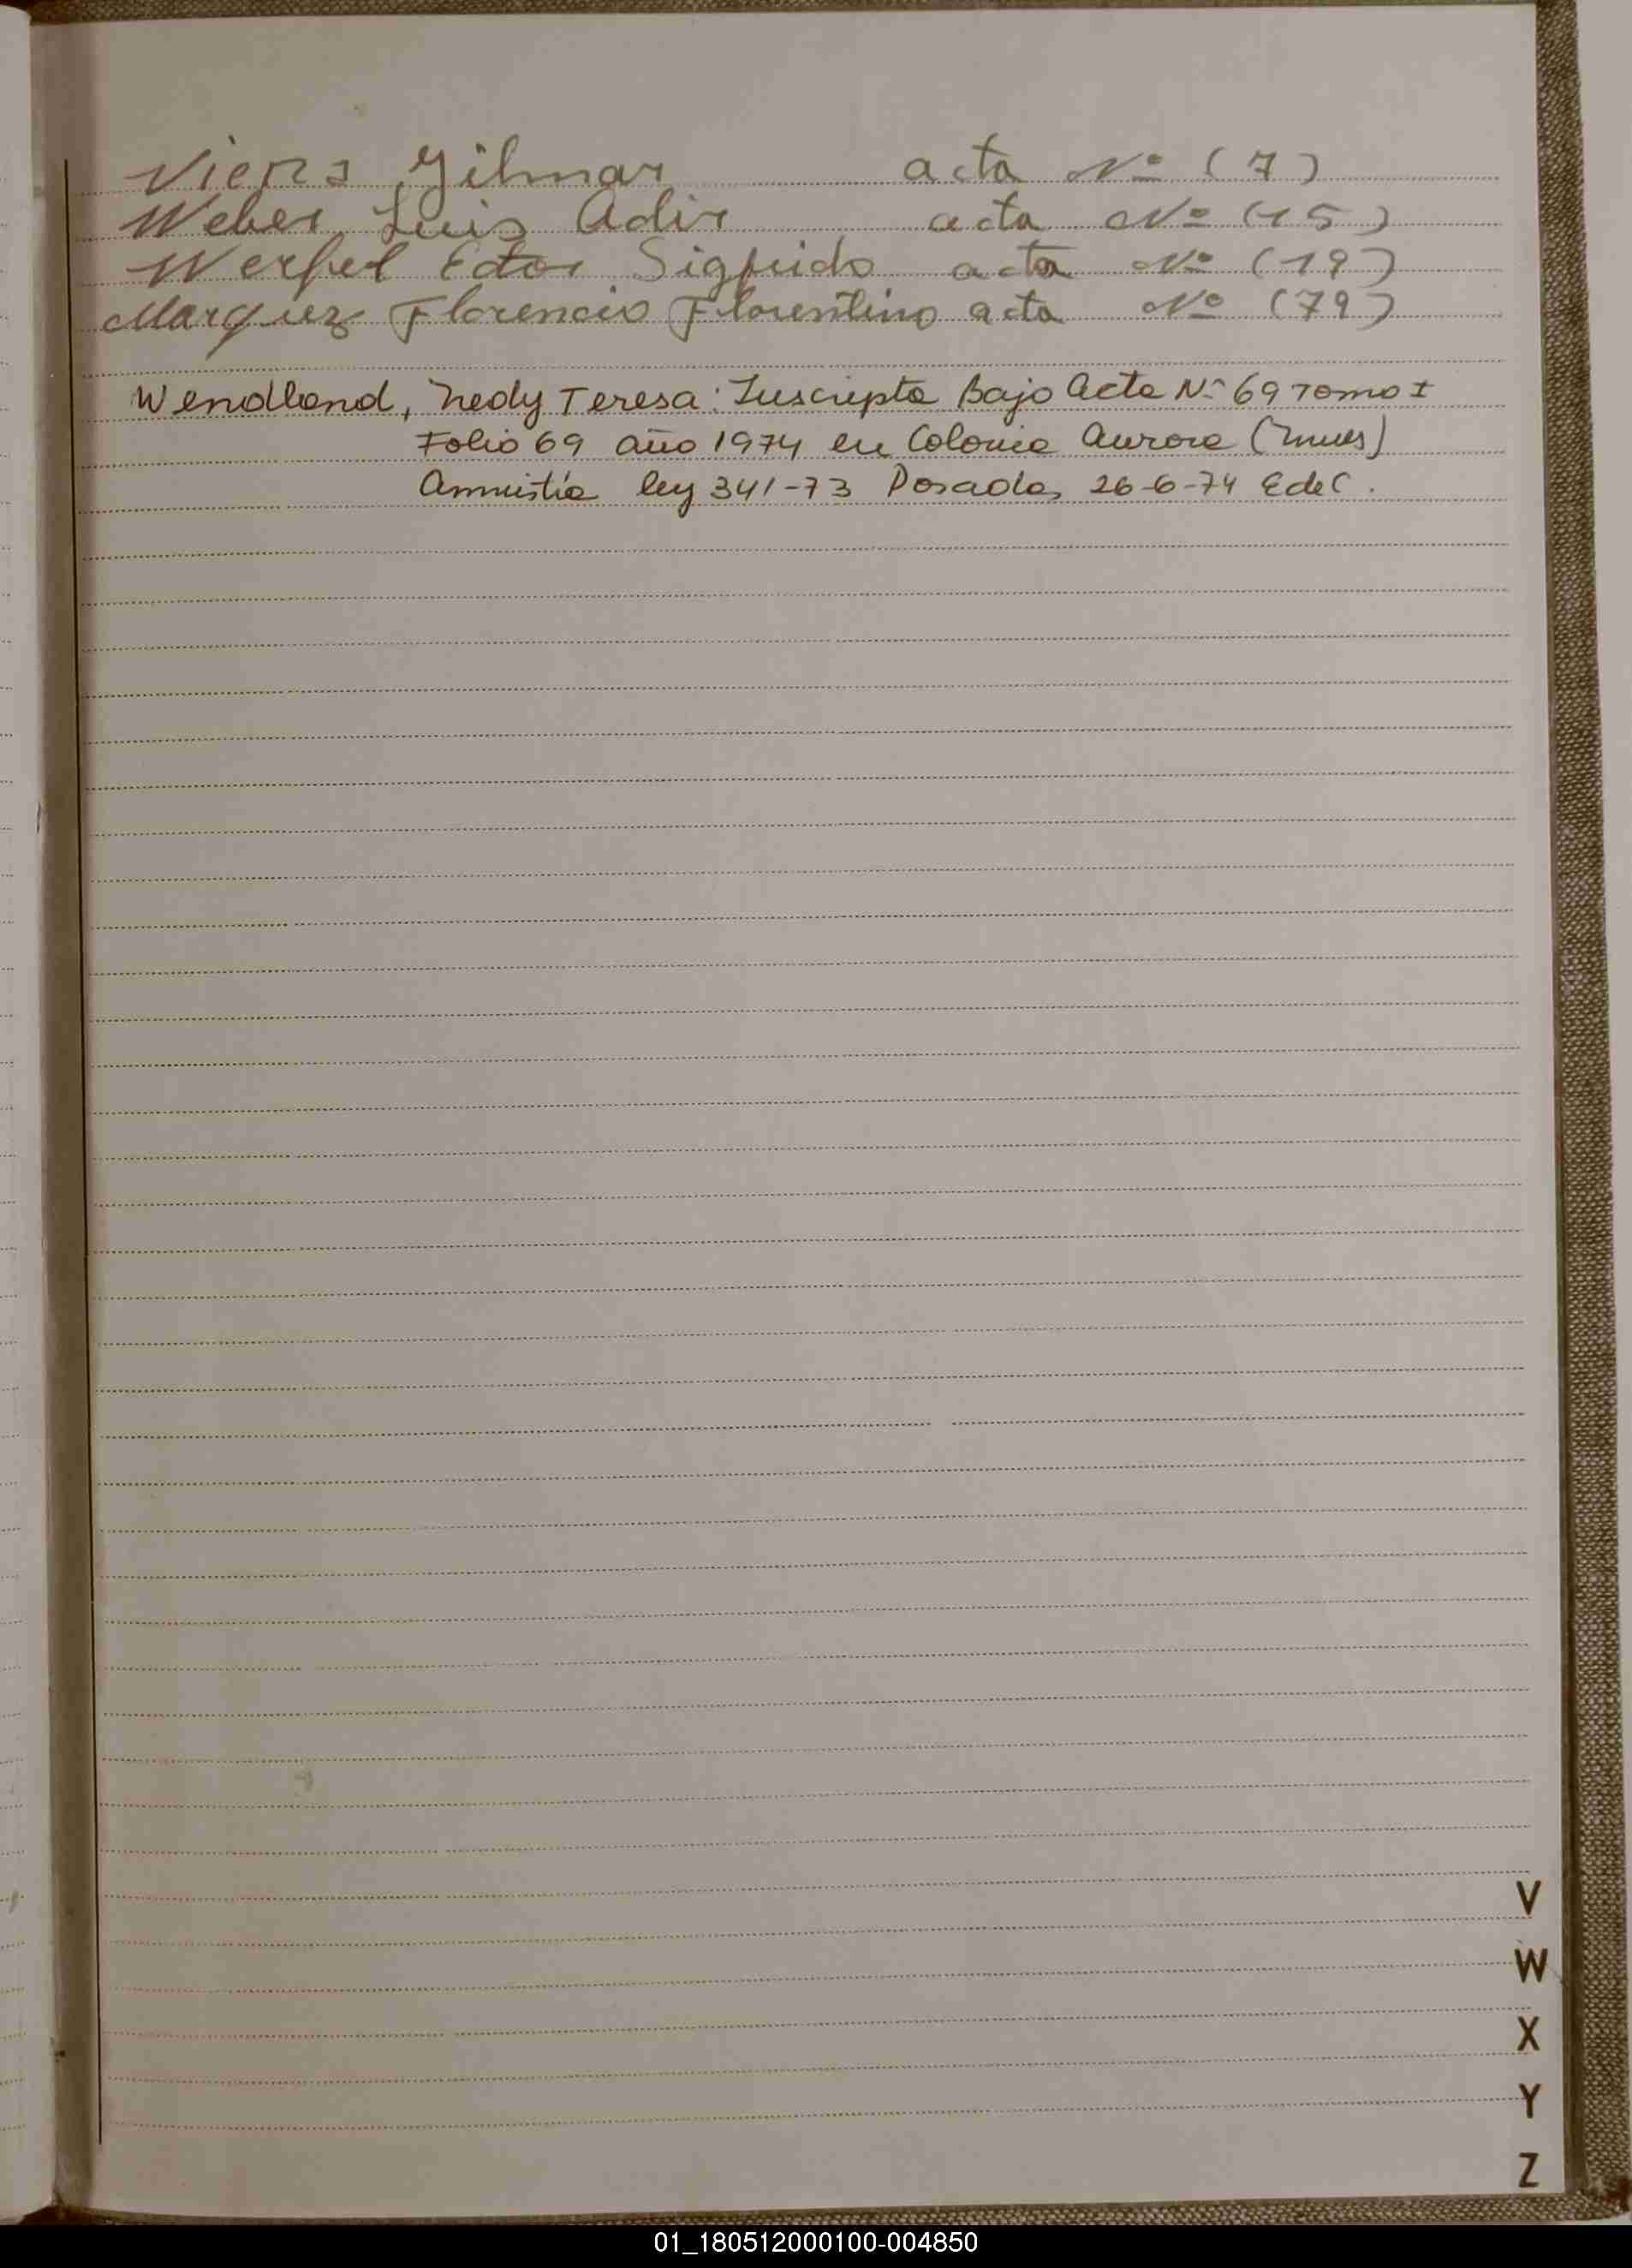 Viera Gilmar acta Nº (7)
Weber Luis Adir acta Nº (15)
Werfel Edtor Sigfrido acta Nº (19)
Marquez Florencio Florentino acta Nº (79)
Wendland, Nedy Teresa: Inscripta Bajo Acta Nº 69 Tomo I
Folio 69 año 1974 en Colonia Aurora (Mnes)
Amnistía ley 341-73 Posadas 26-6-74 E de C.
V
W
X
Y
Z
01_180512000100-004850